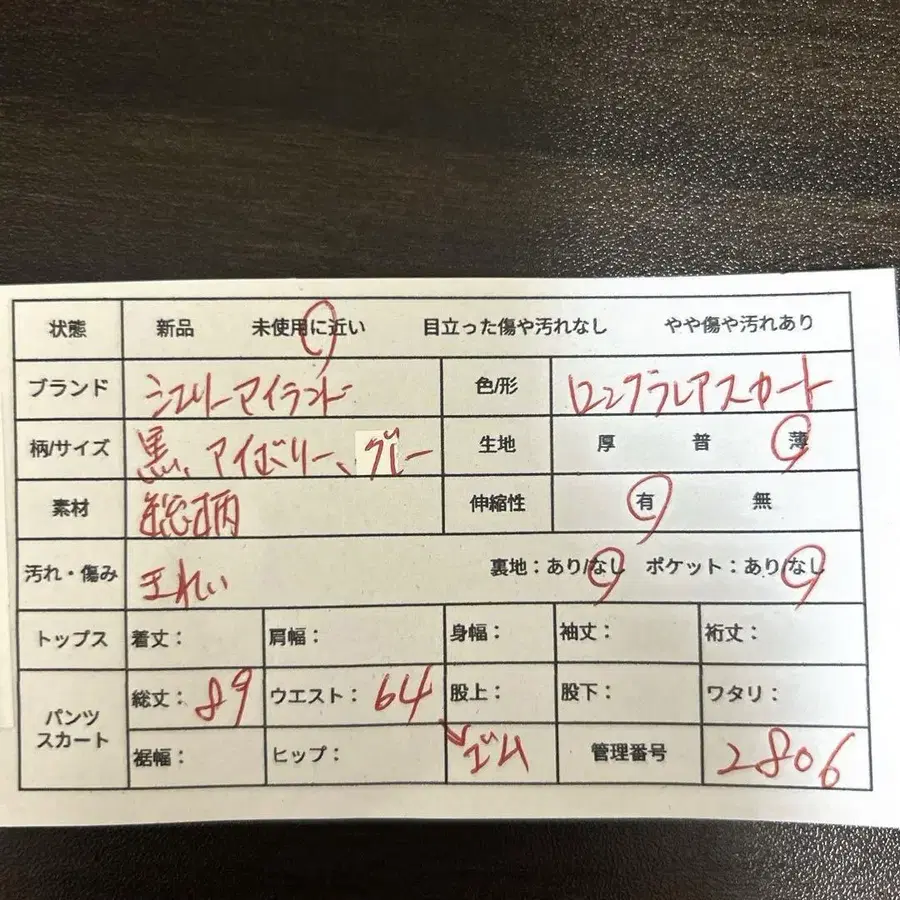 状態 新品 未使用に近い 目立った傷や汚れなし やや傷や汚れあり
ブランド シェリーアイランド 色/形 ロングフレアスカート
柄/サイズ 黒、アイボリー、グレー 生地 厚 普 薄
素材 総柄 伸縮性 有 無
汚れ・傷み きれい 裏地：あり/なし ポケット：あり/なし
トップス 着丈： 肩幅： 身幅： 袖丈： 裄丈：
パンツ スカート 総丈：89 ウエスト：64 股上： 股下： ワタリ：
裾幅： ヒップ： ゴム 管理番号 2806